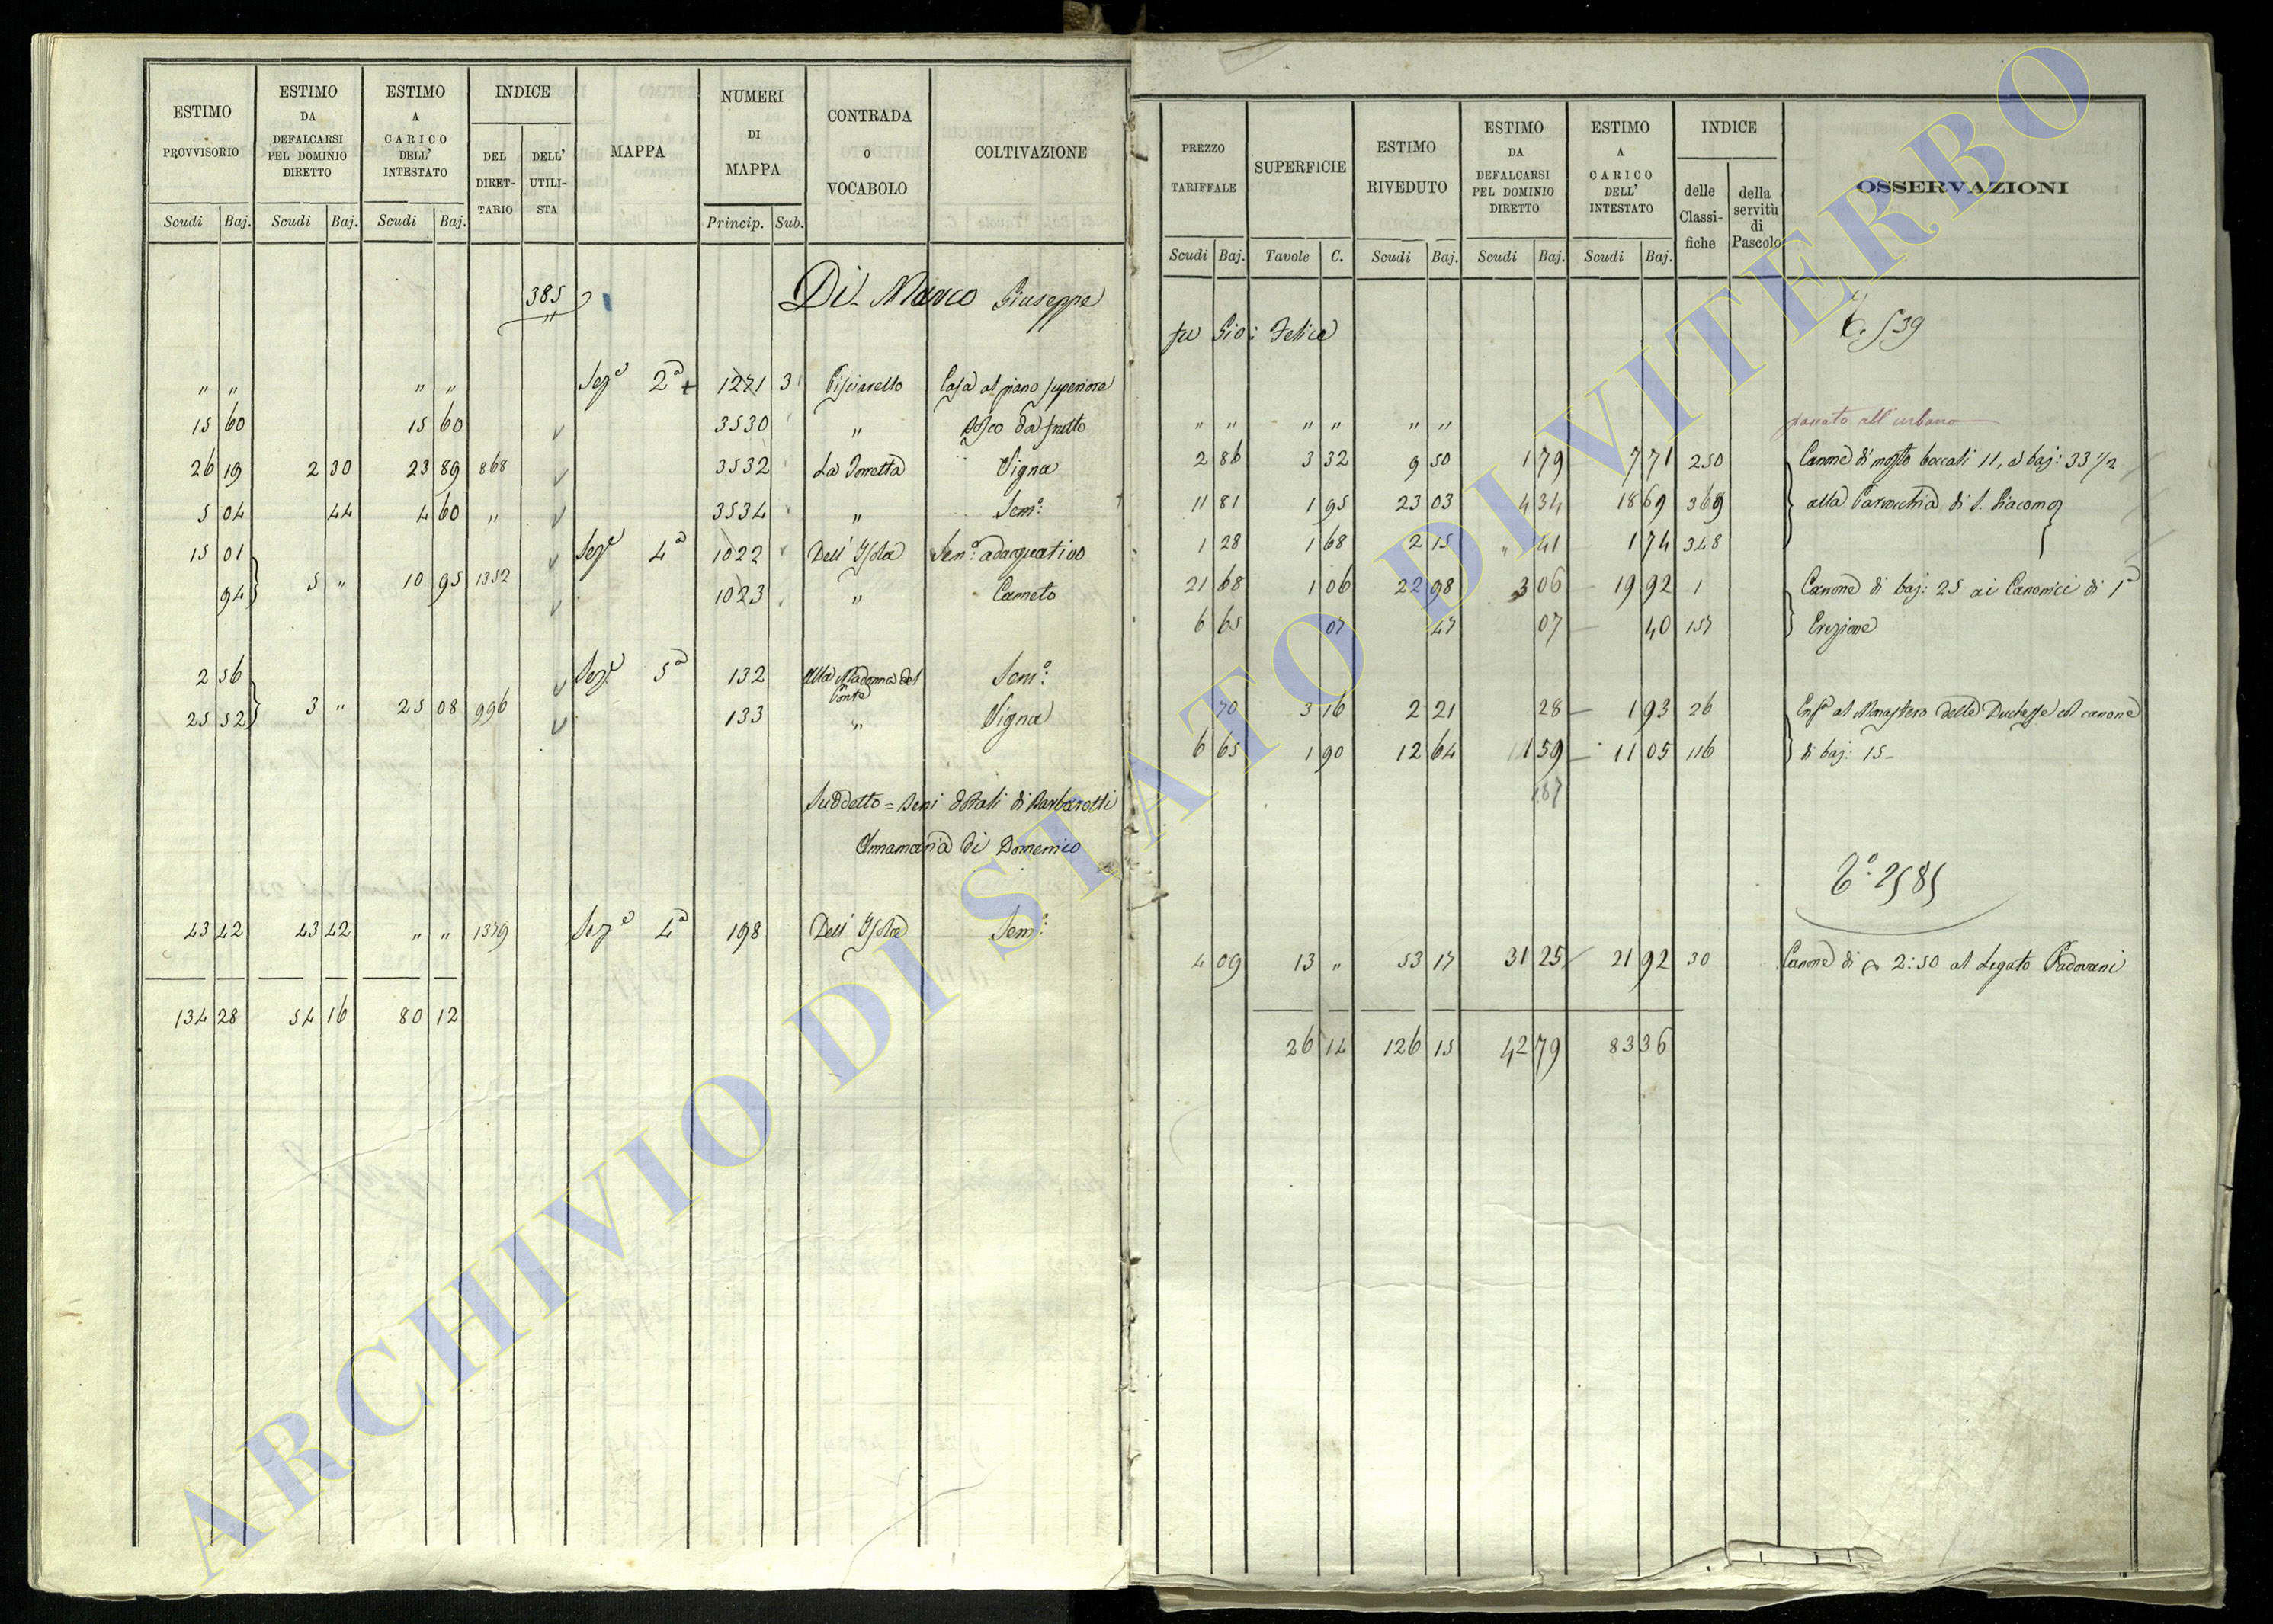 ESTIMO PROVVISORIO Scudi Baj.
ESTIMO DA DEFALCARSI PEL DOMINIO DIRETTO Scudi Baj.
ESTIMO A CARICO DELL' INTESTATO Scudi Baj.
INDICE DEL DIRET-TARIO DELL' UTILI-STA
MAPPA
NUMERI DI MAPPA Princip. Sub.
CONTRADA O VOCABOLO
COLTIVAZIONE
385 Di Marco Giuseppe
" " " " Sez.e 2a + 1271 3 Pisciarello Casa al piano superiore
15 60 15 60 3530 " Bosco da frutto
26 19 2 30 23 89 868 3532 La Torretta Vigna
5 04 44 4 60 " 3534 " Sem.o
15 01 Sez.e 4a 1022 Dell' Isola Sem.o adacquativo
94 5 " 10 95 1352 1023 " Canneto
2 56 Sez.e 5a 132 alla Madonna del Ponte Sem.o
25 52 3 " 25 08 996 133 " Vigna
Suddetto = Beni dotali di Barbarotti
Annamaria di Domenico
43 42 43 42 " " 1379 Sez.e 4a 198 Dell' Isola Sem.o
134 28 54 16 80 12
PREZZO TARIFFALE Scudi Baj.
SUPERFICIE Tavole C.
ESTIMO RIVEDUTO Scudi Baj.
ESTIMO DA DEFALCARSI PEL DOMINIO DIRETTO Scudi Baj.
ESTIMO A CARICO DELL' INTESTATO Scudi Baj.
INDICE delle Classi-fiche della servitù di Pascolo
OSSERVAZIONI
fu Gio: Felice
539
" " " " " " passato all'urbano
2 86 3 32 9 50 1 79 7 71 250 Canone di mosto boccali 11, a baj: 33 1/2
11 81 1 95 23 03 4 34 18 69 369 alla Parrocchia di S. Giacomo
1 28 1 68 2 15 " 41 1 74 348
21 68 1 06 22 98 3 06 19 92 1 Canone di baj: 25 ai Canonici di 1a
6 65 07 47 07 40 157 Erezione
70 3 16 2 21 28 1 93 26 Enf.a al Monastero delle Duchesse col canone
6 65 1 90 12 64 1 59 11 05 116 di baj: 15
187
2585
4 09 13 " 53 17 31 25 21 92 30 Canone di 2:50 al Legato Padovani
26 14 126 15 42 79 83 36
ARCHIVIO DI STATO DI VITERBO